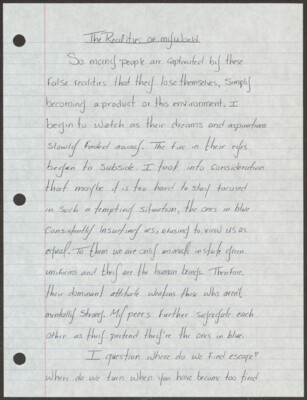 The Realities of my World
So many people are captivated by these
False realities that they lose themselves, simply
becoming a product of this environment. I
begin to watch as their dreams and aspirations
slowly faded away. The fire in their eyes
began to subside. I took into consideration
that maybe it is too hard to stay focused
in such a tempting situation, the ones in blue
consistantly insulting us, refusing to view us as
equal. To them we are only animals in state green
uniforms and they are the human beings. Therefore,
their dominant attitude weakens those who aren't
mentally strong. My peers further segregate each
other as they pretend they're the ones in blue.
I question where do we find escape?
Where do we turn when you have become too tired